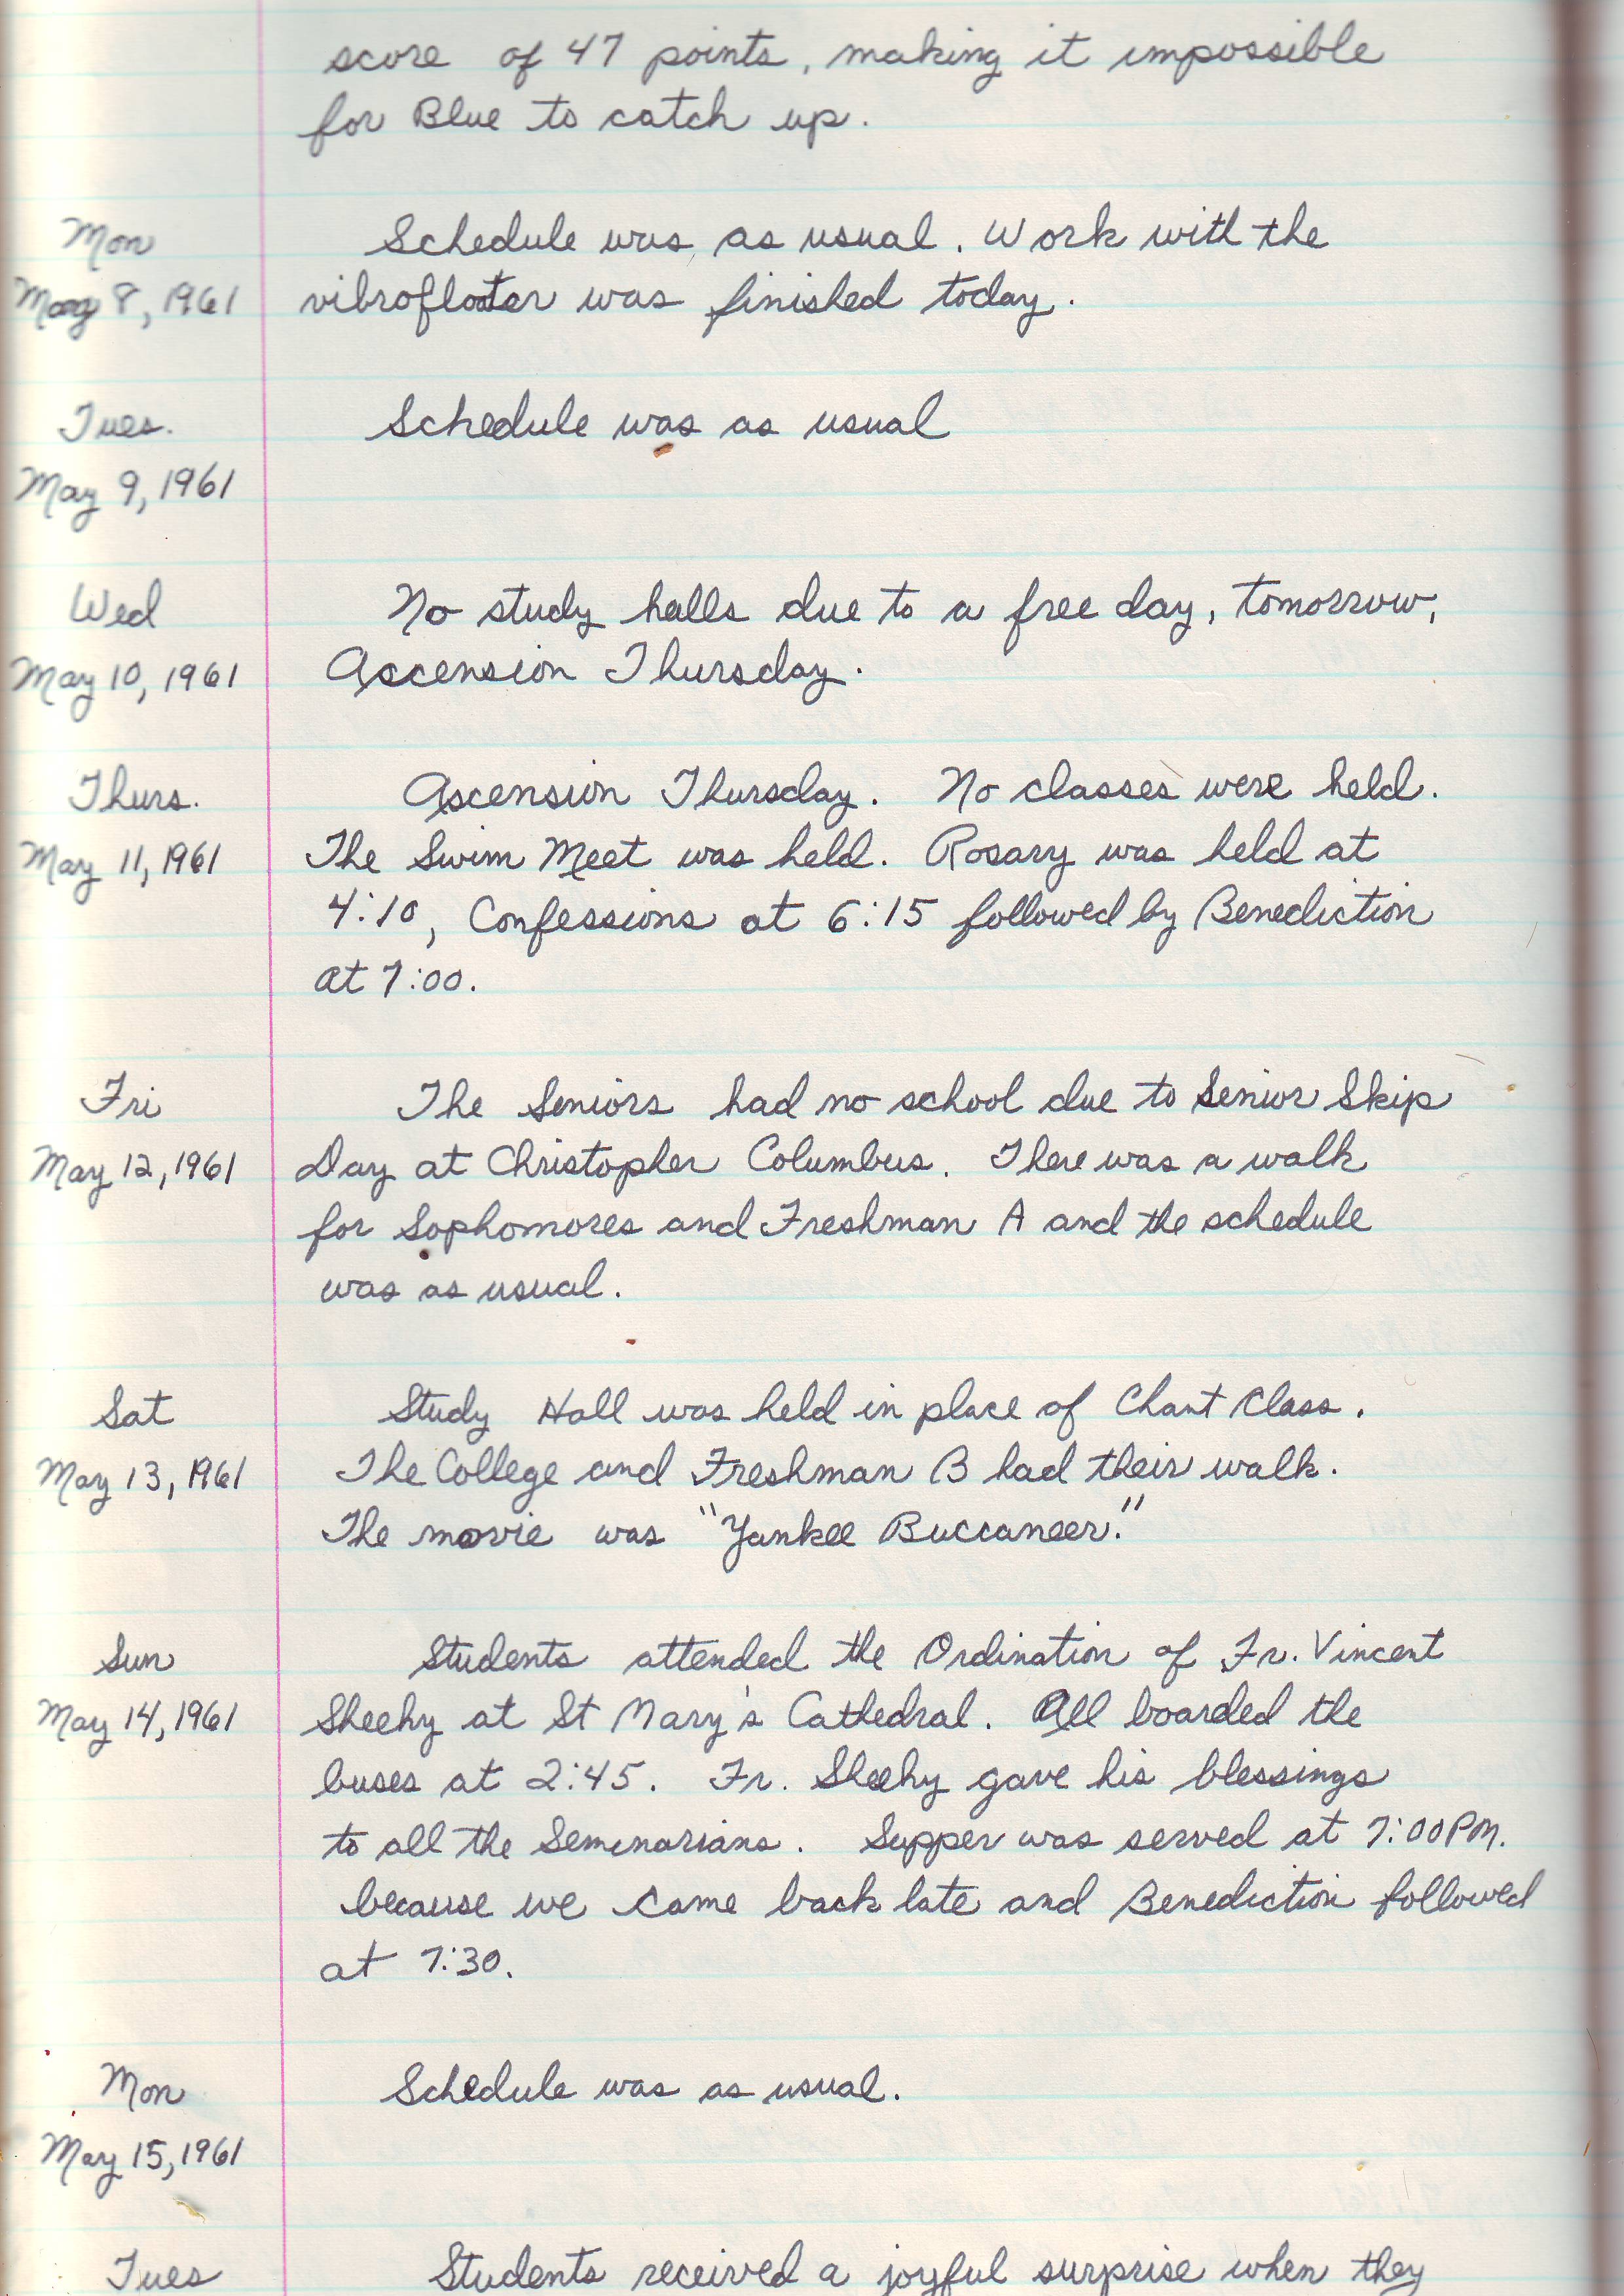 score of 47 points, making it impossible
for Blue to catch up.
Mon
May 8, 1961
Schedule was as usual. Work with the
vibrofloater was finished today.
Tues.
May 9, 1961
Schedule was as usual
Wed
May 10, 1961
No study halls due to a free day, tomorrow,
Ascension Thursday.
Thurs.
May 11, 1961
Ascension Thursday. No classes were held.
The Swim Meet was held. Rosary was held at
4:10, Confessions at 6:15 followed by Benediction
at 7:00.
Fri
May 12, 1961
The Seniors had no school due to Senior Skip
Day at Christopher Columbus. There was a walk
for Sophomores and Freshman A and the schedule
was as usual.
Sat
May 13, 1961
Study Hall was held in place of Chant Class.
The College and Freshman B had their walk.
The movie was "Yankee Buccaneer."
Sun
May 14, 1961
Students attended the Ordination of Fr. Vincent
Sheehy at St Mary's Cathedral. All boarded the
buses at 2:45. Fr. Sheehy gave his blessings
to all the Semenarians. Supper was served at 7:00 PM.
because we came back late and Benediction followed
at 7:30.
Mon
May 15, 1961
Schedule was as usual.
Tues
Students received a joyful surprise when they